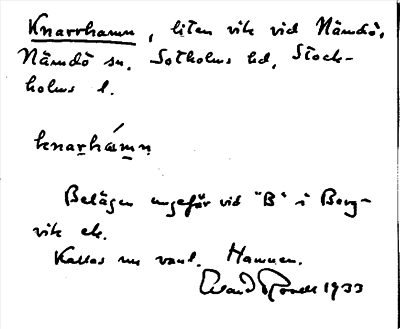 Knarrhamn, liten vik vid Nämdö,
Nämdö sn. Sotholms hd, Stock-
holms l.
knarhámn
Belägen ungefär vid "B" i Borg-
vik etc.
Kallas nu vanl. Hamnen.
1933